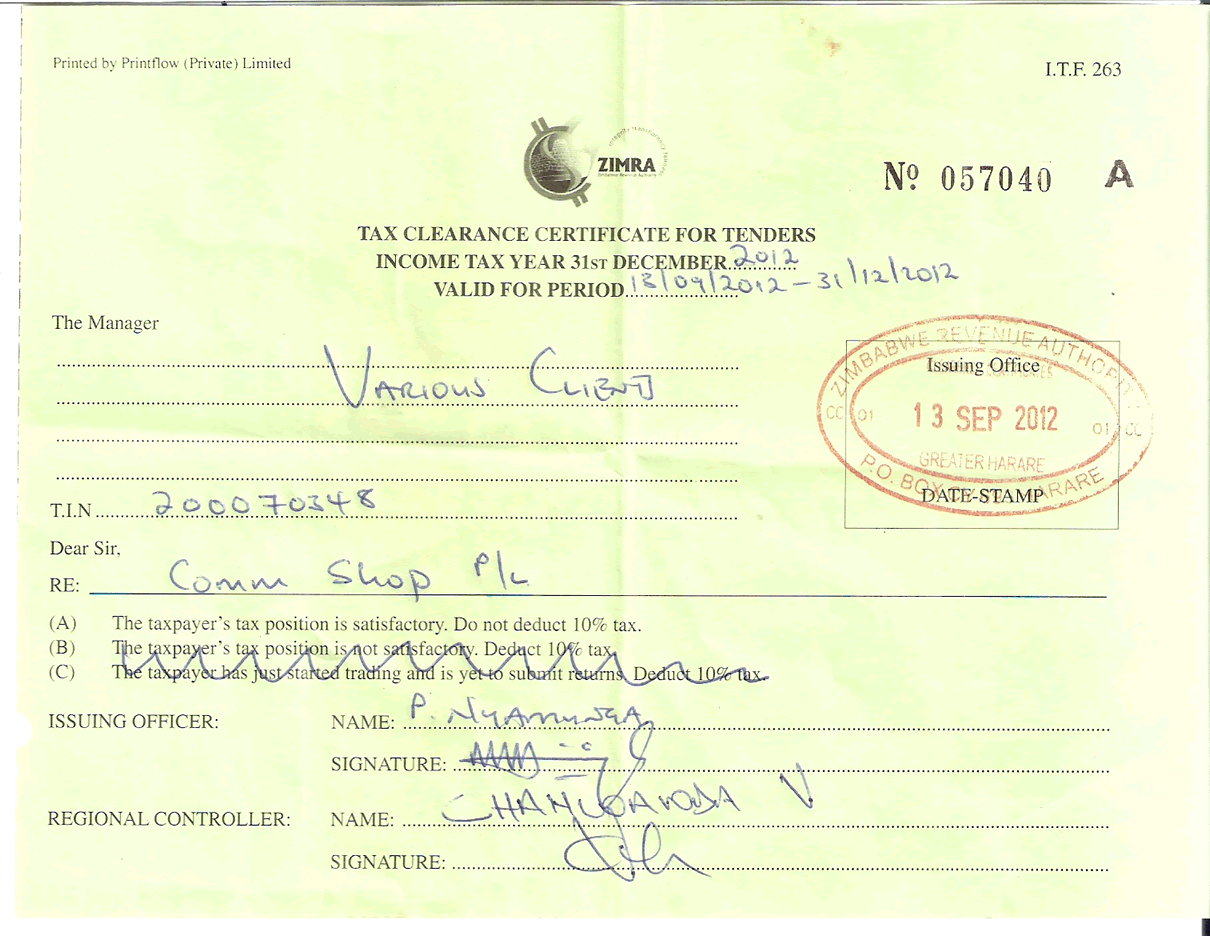 Printed by Printflow (Private) Limited
I.T.F. 263
ZIMRA
Zimbabwe Revenue Authority
Nº 057040 A
TAX CLEARANCE CERTIFICATE FOR TENDERS
INCOME TAX YEAR 31ST DECEMBER 2012
VALID FOR PERIOD 13/09/2012 – 31/12/2012
The Manager
VARIOUS CLIENTS
ZIMBABWE REVENUE AUTHORITY
Issuing Office
CC 01 13 SEP 2012 01 CC
GREATER HARARE
P.O. BOX HARARE
DATE-STAMP
T.I.N 200070348
Dear Sir,
RE: Comm Shop P/L
(A) The taxpayer's tax position is satisfactory. Do not deduct 10% tax.
(B) The taxpayer's tax position is not satisfactory. Deduct 10% tax.
(C) The taxpayer has just started trading and is yet to submit returns. Deduct 10% tax.
ISSUING OFFICER: NAME: P.
SIGNATURE:
REGIONAL CONTROLLER: NAME: V
SIGNATURE: